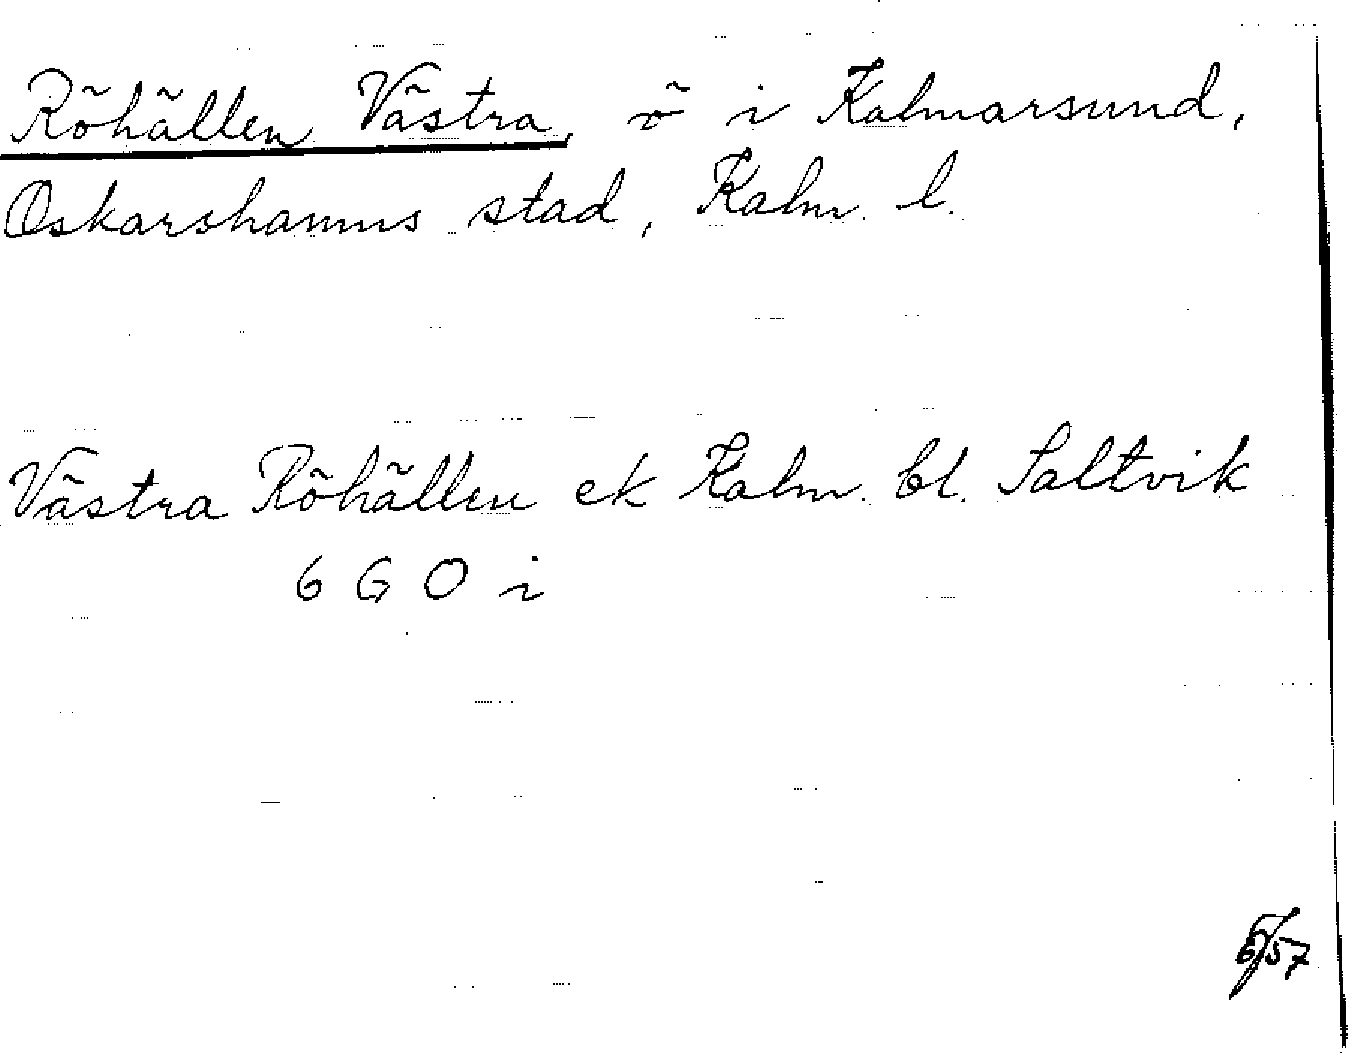 Röhällen Västra, ö i Kalmarsund,
Oskarshamns stad, Kalm. l.
Västra Röhällen ek Kalm. bl. Saltvik
6 G O i
/57